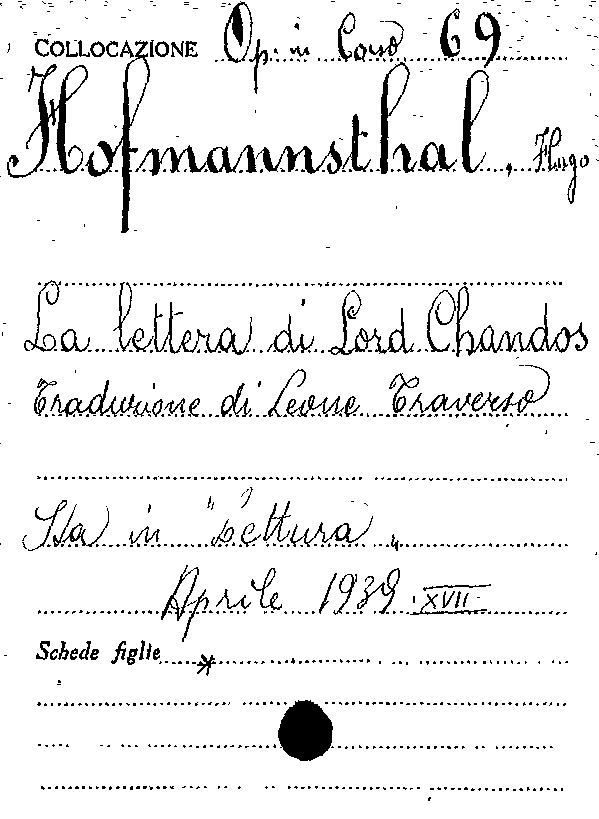 COLLOCAZIONE Op. in Corso 69
Hofmannsthal, Hugo
La lettera di Lord Chandos
Traduzione di Leone Traverso
Sta in "Lettura"
Aprile 1939 . XVII
Schede figlie *